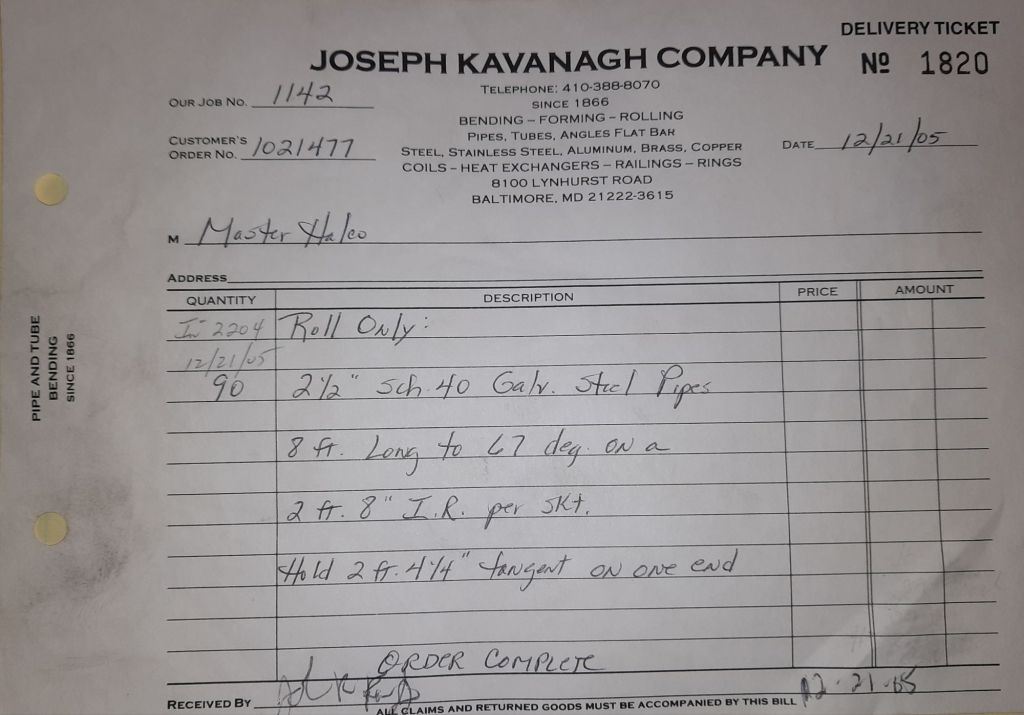 DELIVERY TICKET
JOSEPH KAVANAGH COMPANY
No 1820
TELEPHONE: 410-388-8070
SINCE 1866
BENDING – FORMING – ROLLING
PIPES, TUBES, ANGLES FLAT BAR
STEEL, STAINLESS STEEL, ALUMINUM, BRASS, COPPER
COILS – HEAT EXCHANGERS – RAILINGS – RINGS
8100 LYNHURST ROAD
BALTIMORE, MD 21222-3615
OUR JOB NO. 1142
CUSTOMER'S
ORDER NO. 1021477
DATE 12/21/05
M Master Halco
ADDRESS
QUANTITY DESCRIPTION PRICE AMOUNT
In 2204 Roll Only:
12/21/05
90 2 1/2" Sch. 40 Galv. Steel Pipes
8 ft. Long to 67 deg. on a
2 ft. 8" I.R. per skt.
Hold 2 ft. 4 1/4" tangent on one end
ORDER COMPLETE
RECEIVED BY 12-21-05
ALL CLAIMS AND RETURNED GOODS MUST BE ACCOMPANIED BY THIS BILL
PIPE AND TUBE
BENDING
SINCE 1866